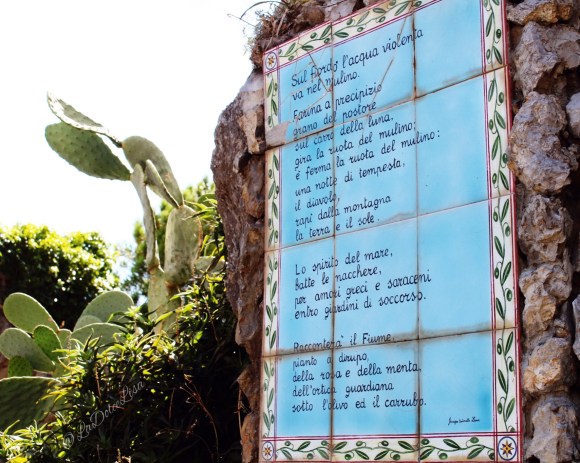 Sul Fordo l'acqua violenta
va nel mulino.
Farina a precipizio
grano del pastore
sul carro della luna,
gira la ruota del mulino;
è ferma la ruota del mulino:
una notte di tempesta,
il diavolo,
rapì dalla montagna
la terra e il sole.
Lo spirito del mare,
batte le nacchere,
per amori greci e saraceni
entro giardini di soccorso.
Racconterà il Fiume,
pianto a dirupo,
della rosa e della menta,
dell'ortica guardiana
sotto l'olivo ed il carrubo.
© LaDolceLisa